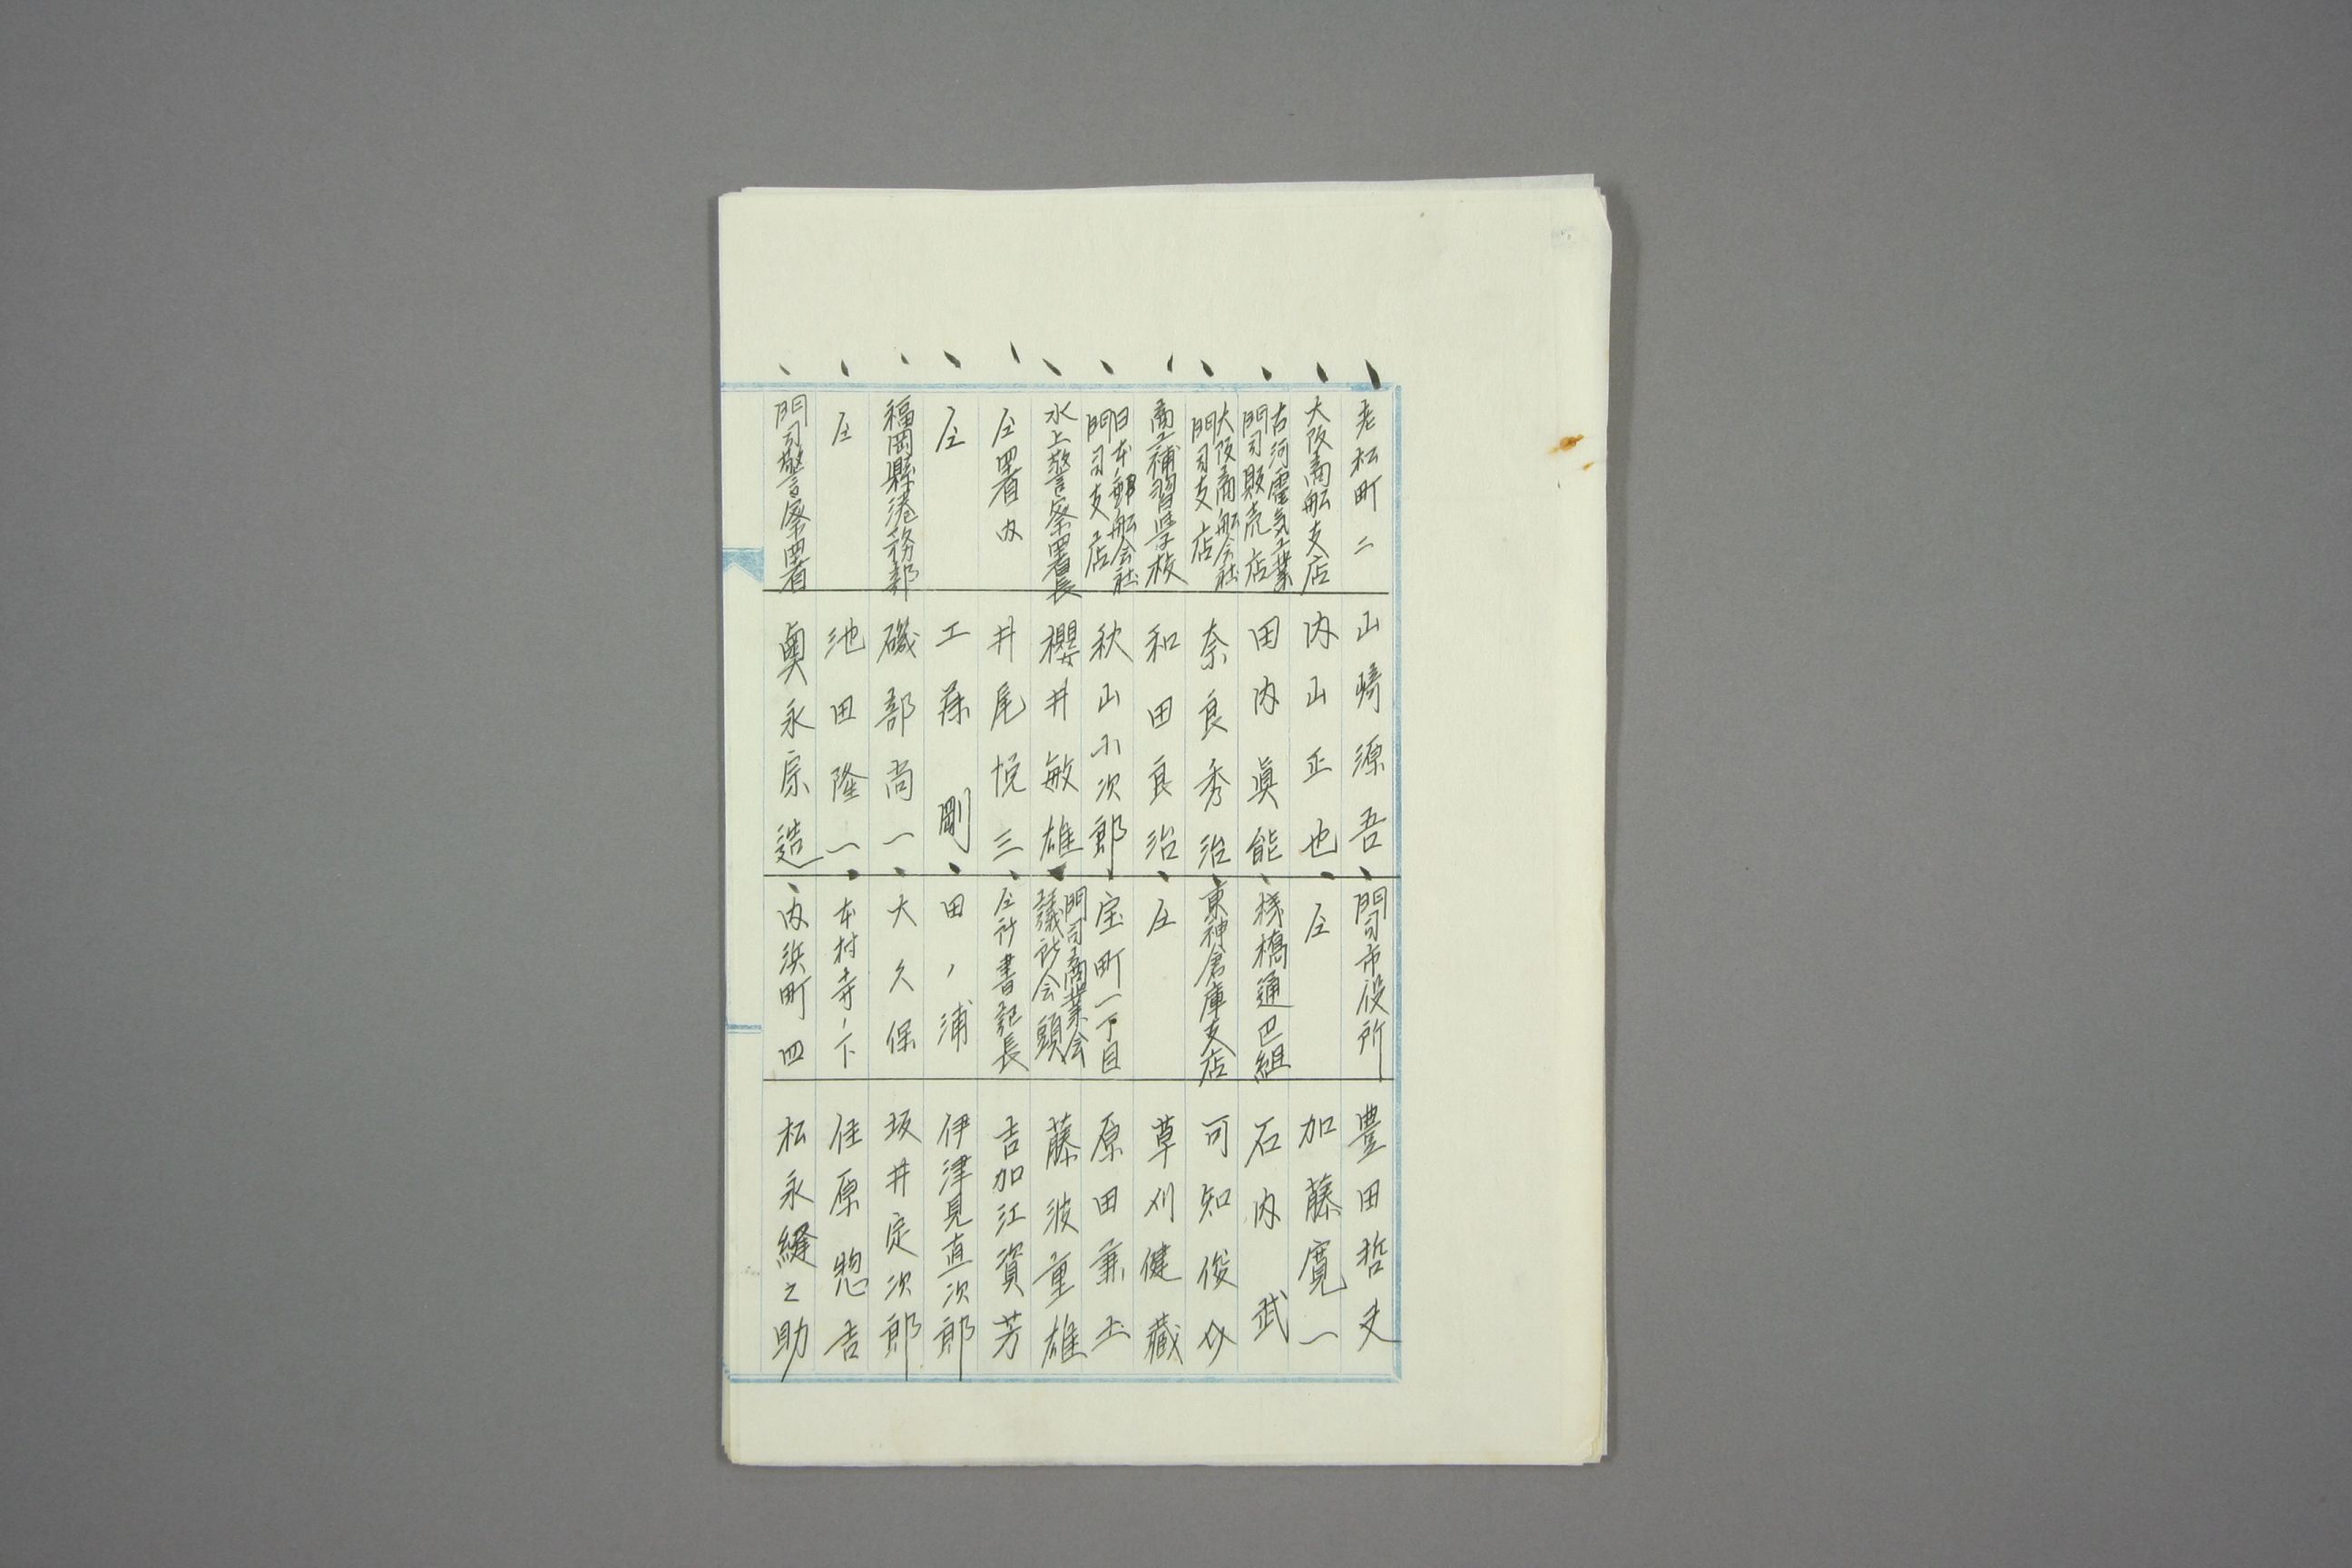 老松町二　山崎源吾
大阪商舩支店　内山正也
古河電気工業
門司販売店　田内眞能
大阪商舩会社
門司支店　奈良秀治
商工補習学校　和田良治
日本郵舩会社
門司支店　秋山小次郎
水上警察署長　櫻井敏雄
仝署内　井尾悦三
仝　工藤剛
福岡縣港務部　磯部尚一
仝　池田隆一
門司警察署　奥永宗造
門司市役所　豊田哲夫
仝　加藤寛一
桟橋通巴組　石内武
東神倉庫支店　可知俊介
仝　草刈健藏
宝町一丁目　原田兼
門司商業会
議所会頭　藤波重雄
仝所書記長　吉加江資芳
田ノ浦　伊津見直次郎
大久保　坂井定次郎
本村寺ノ下　住原惣吉
内浜町四　松永縫之助